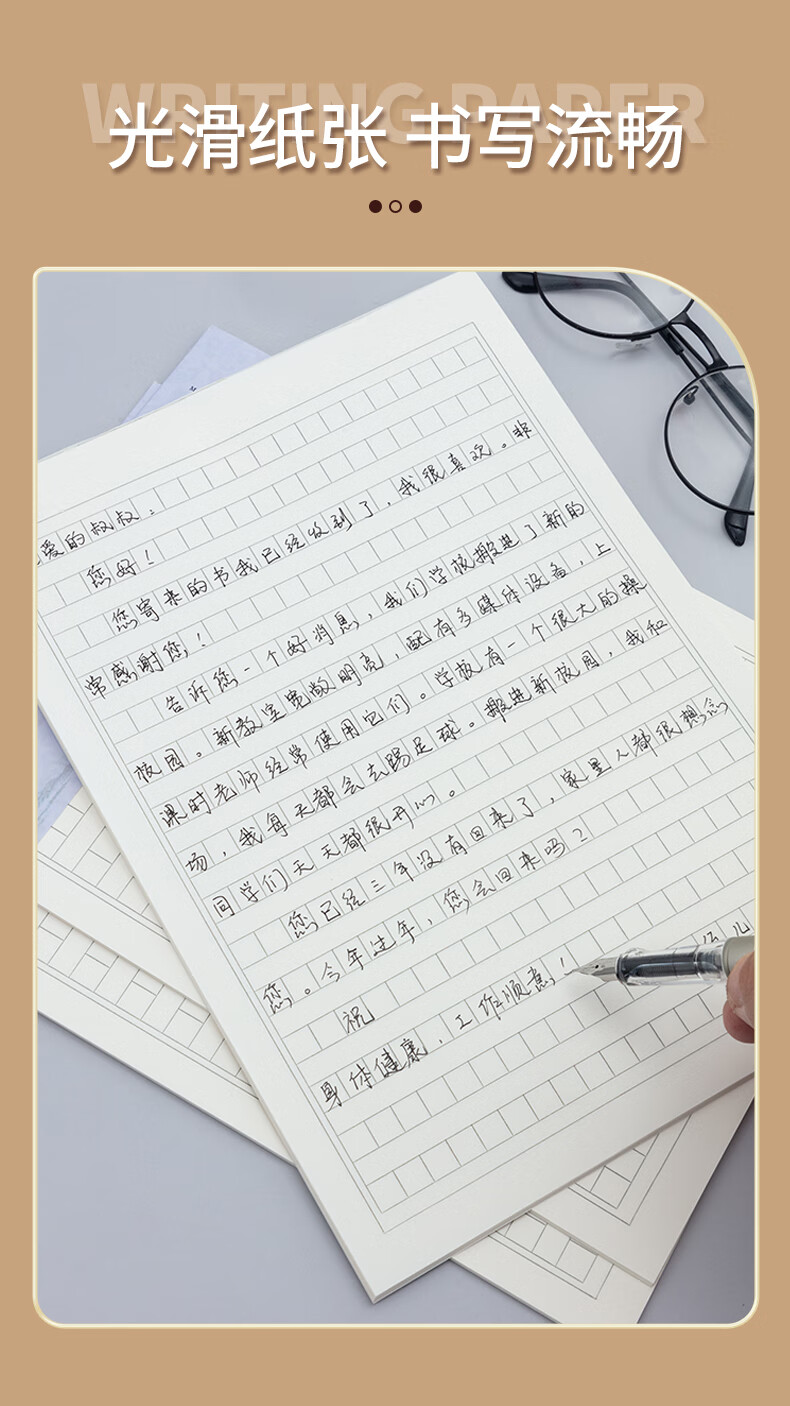 WRITING PAPER
光滑纸张 书写流畅
爱的叔叔：
您好！
您寄来的书我已经收到了，我很喜欢。非
常感谢您！
告诉您一个好消息，我们学校搬进了新的
校园。新教室宽敞明亮，配有多媒体设备，上
课时老师经常使用它们。学校有一个很大的操
场，我每天都会去踢足球。搬进新校园，我和
同学们天天都很开心。
您已经三年没有回来了，家里人都很想念
您。今年过年，您会回来吗？
祝
身体健康，工作顺意！